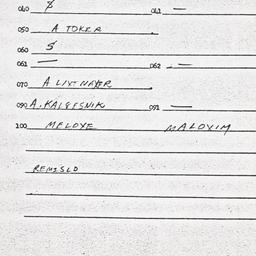 040 8 041 —
050 A TOKER
060 5
061 — 062 —
070 A LITMAYER
090 A. KALEFSNIK 091 —
100 MELOXE MALOVIM
REMISLD